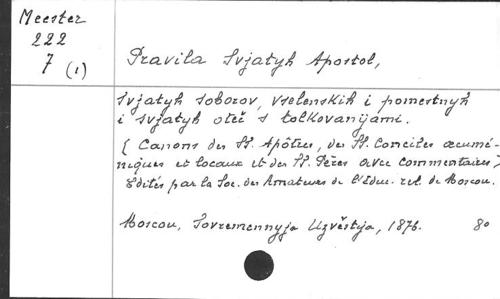 Meester
222
7 (1)
Pravila Svjatyh Apostol,
Svjatyh soborov, vselenskih i pomestnyh
i svjatyh oteč s tolkovanijami.
[Canons des St. Apôtres, des St. Conciles œcumé-
niques et locaux et des St. Pères avec commentaires]
Edités par la Soc. des Amateurs de l'Educ. rel. de Moscou.
Moscou, Sovremennyja Izvěstja, 1876. 80